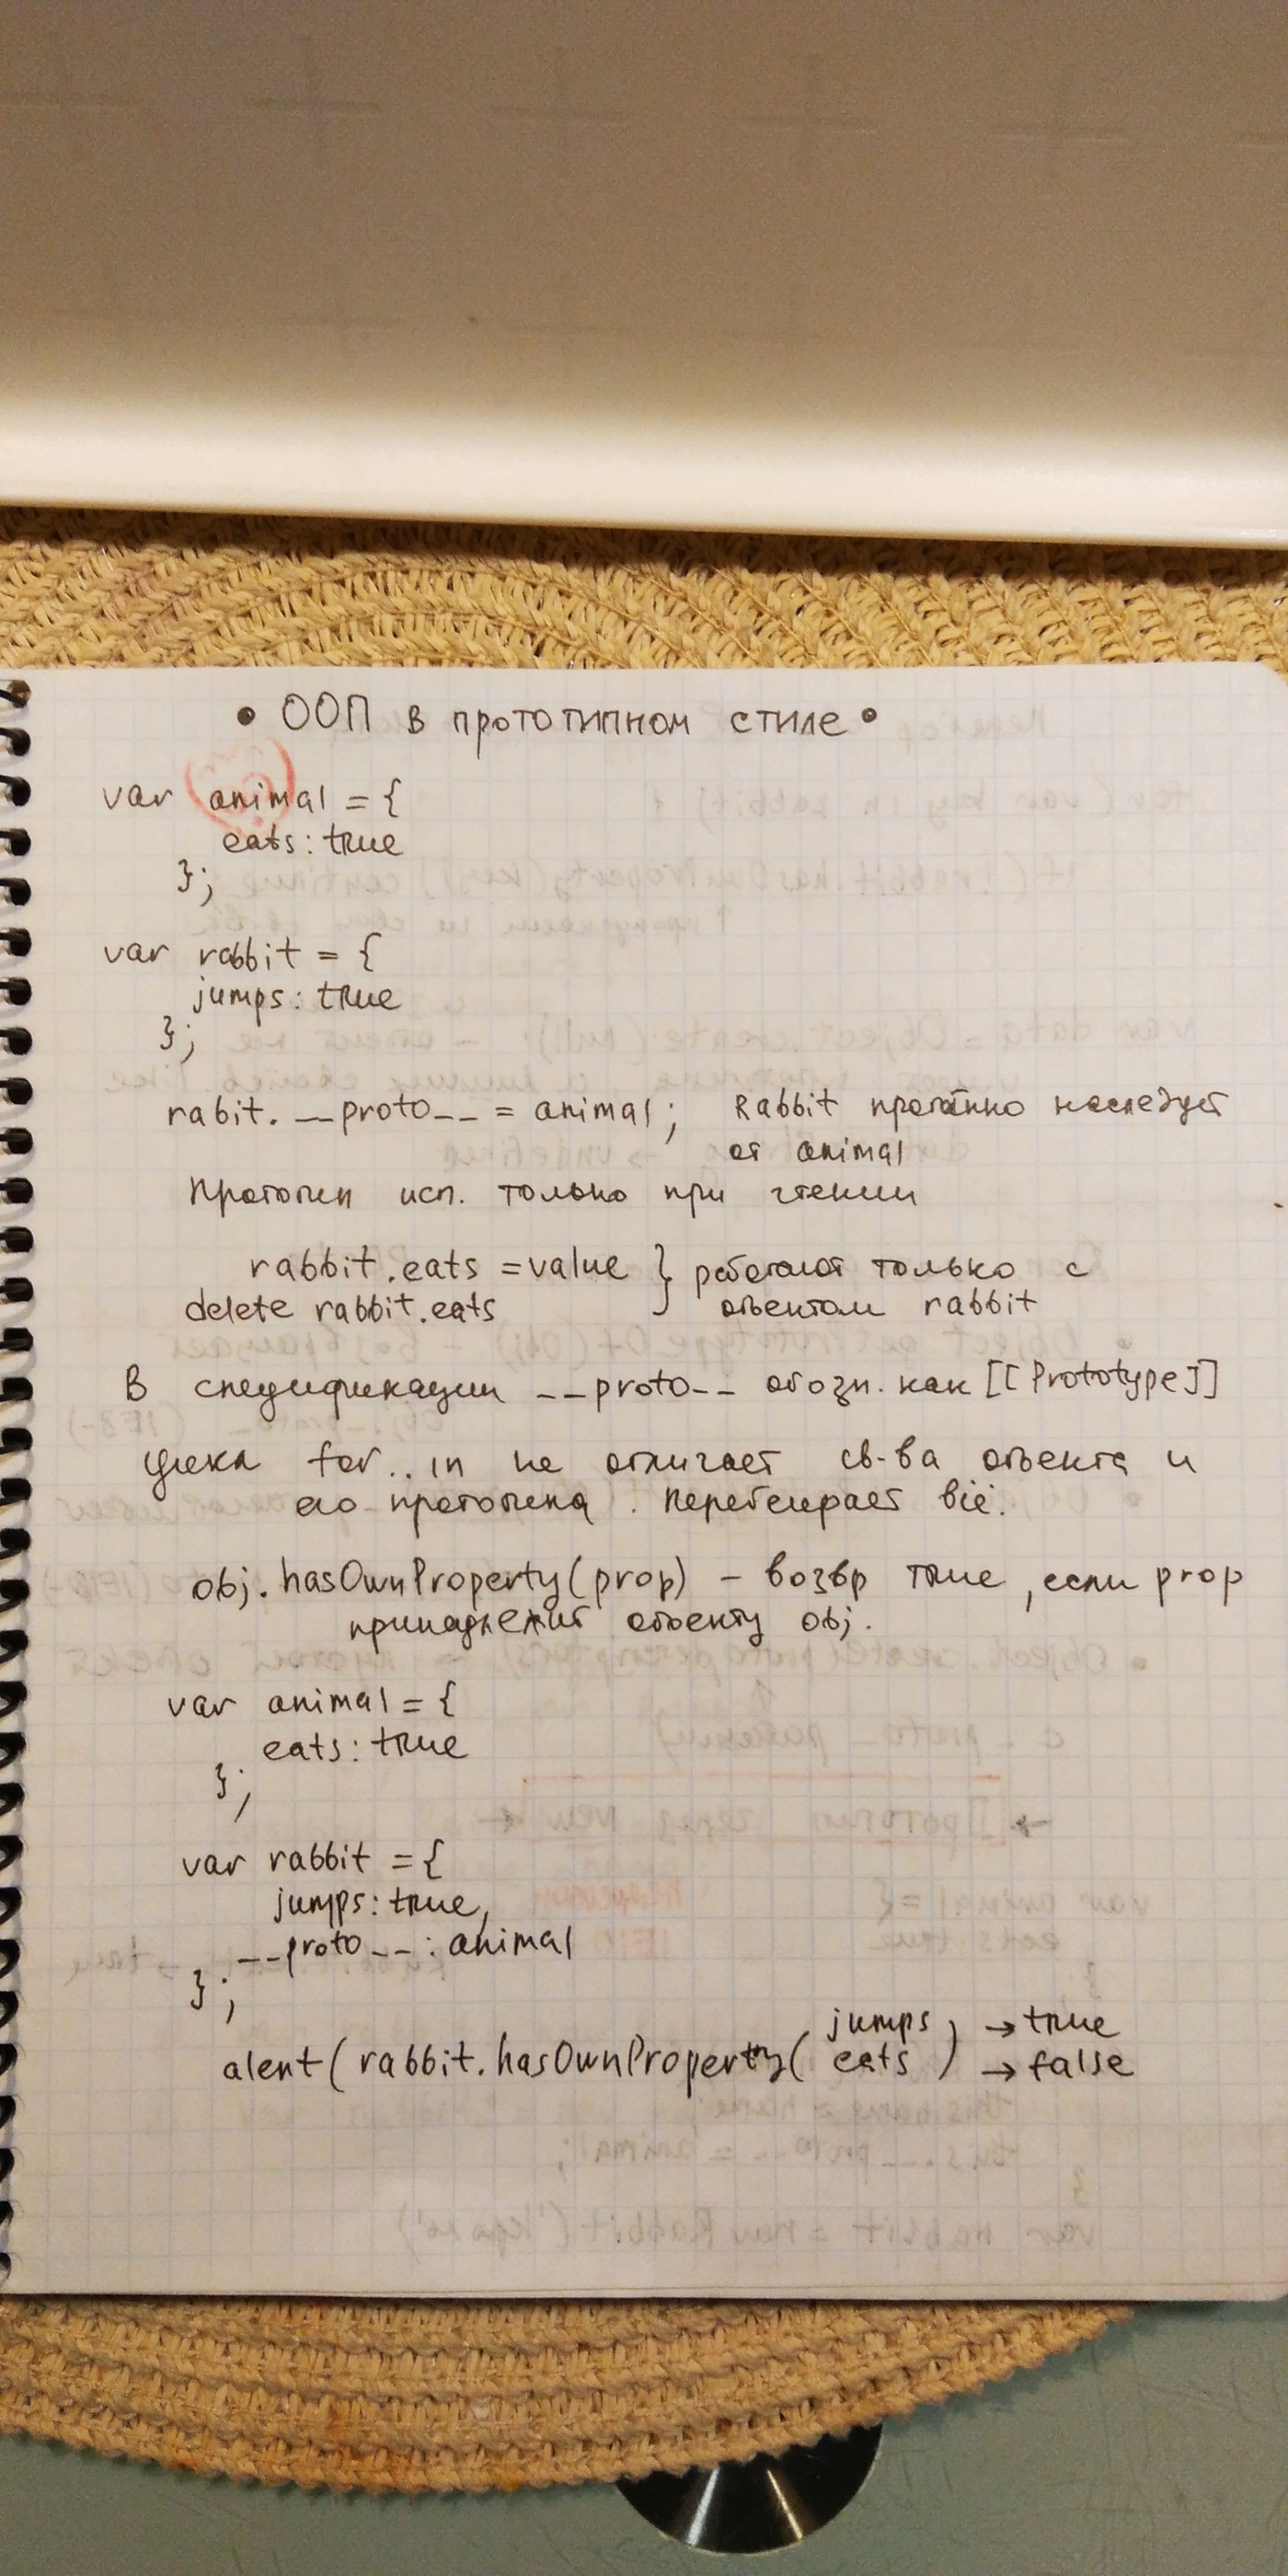 • ООП в прототипном стиле •
var animal = {
eats: true
};
var rabbit = {
jumps: true
};
rabit. __proto__ = animal; Rabbit наследует
от animal
Прототип исп. только при чтении
rabbit.eats = value } работают только с
delete rabbit.eats объектом rabbit
В спецификации __proto__ обозн. как [[Prototype]]
Цикл for..in не отличает св-ва объекта и
его прототипа. Перебирает всё.
obj.hasOwnProperty(prop) – возвр true, если prop
принадлежит объекту obj.
var animal = {
eats: true
};
var rabbit = {
jumps: true,
__proto__: animal
};
jumps ) → true
alert(rabbit.hasOwnProperty( eats → false